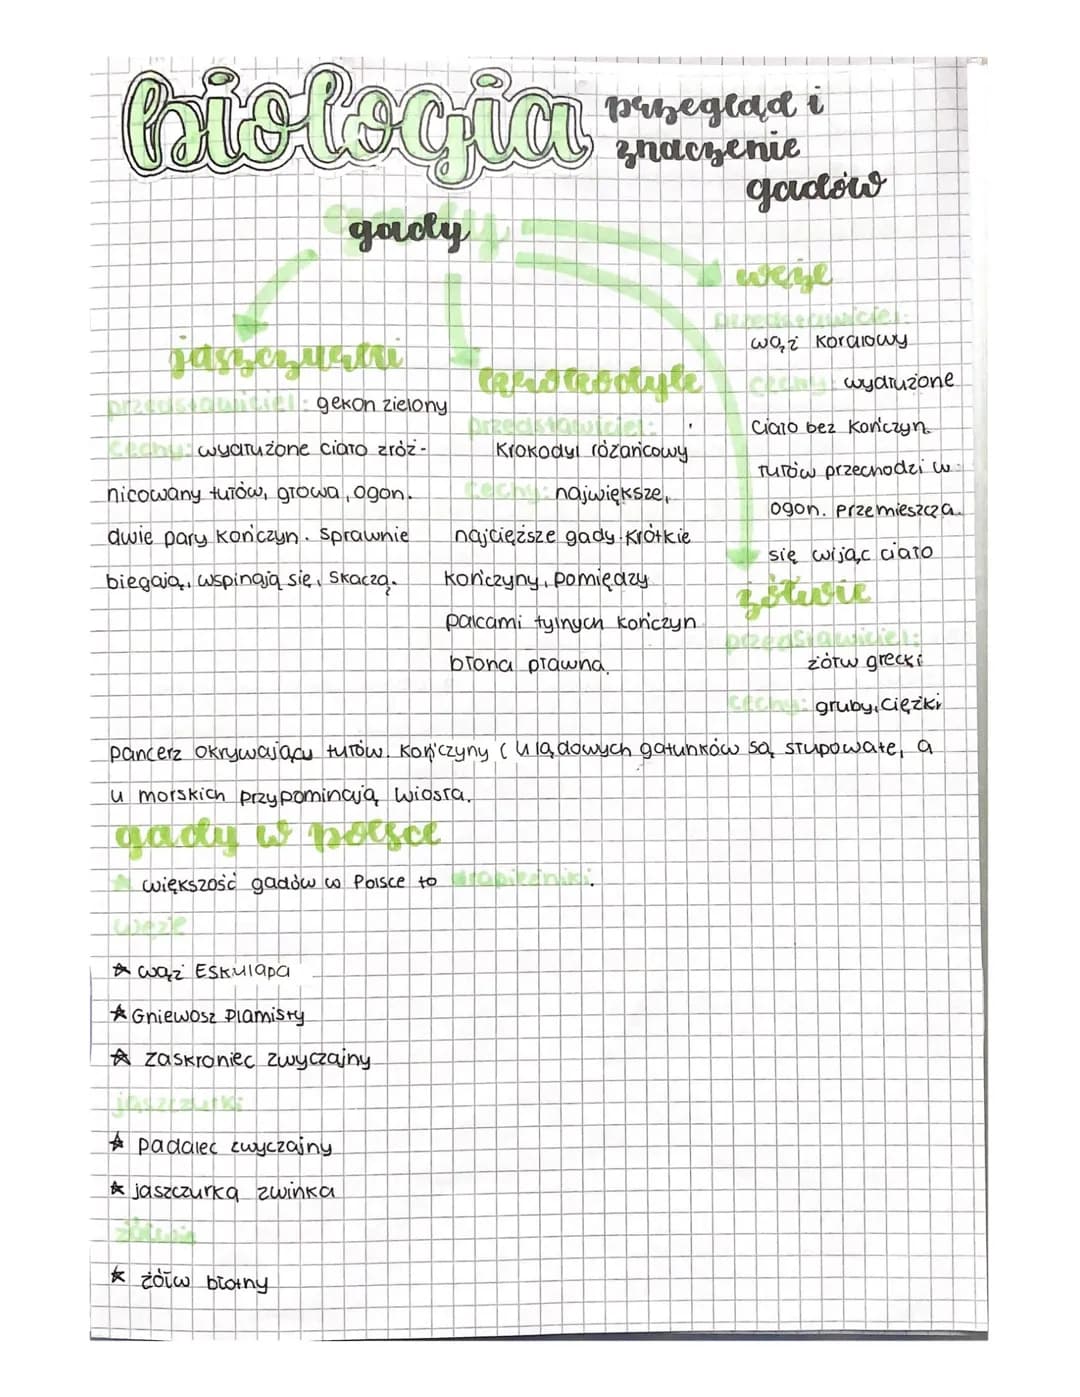 biologia
przegląd i
znaczenie
gadów
gady
jaszczurki
przedstawiciel: gekon zielony
cechy: wydłużone ciało zróż-
nicowany tułów, głowa, ogon.
dwie pary kończyn. Sprawnie
biegają, wspinają się, skaczą.
krokodyle
przedstawiciel:
Krokodyl różańcowy
cechy: największe,
najcięższe gady. Krótkie
kończyny, pomiędzy
palcami tylnych kończyn
błona pławna.
węże
przedstawiciel:
wąż Koralowy
cechy: wydłużone
ciało bez Kończyn.
Tułów przechodzi w
ogon. Przemieszcza
się wijąc ciało
żółwie
przedstawiciel:
żółw grecki
cechy: gruby, ciężki
pancerz okrywający tułów. Kończyny ( u lądowych gatunków są słupowate, a
u morskich przypominają wiosła.
gady w polsce
większość gadów w Polsce to drapieżniki.
węże
★ wąż Eskulapa
★ Gniewosz Plamisty
★ zaskroniec zwyczajny
jaszczurki
★ padalec zwyczajny
★ jaszczurka zwinka
żółwie
★ żółw błotny